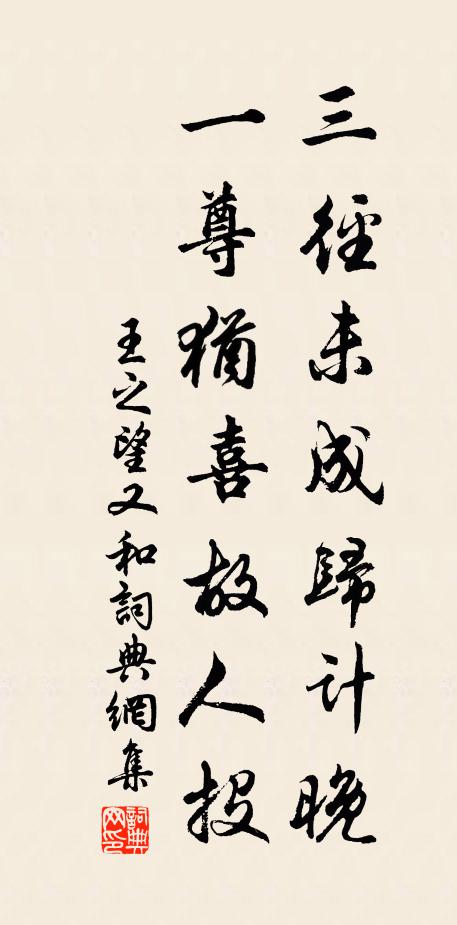 三徑未成歸計晚
一尊猶喜故人投
王之望又和詞典網集
詞典
网印